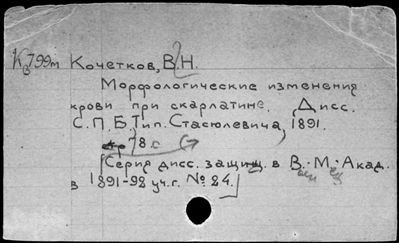 К 799м Кочетков, В. Н.
Морфологические изменения
крови при скарлатине. Дисс.
С. П. Б. Тип. Стасюлевича, 1891.
78 с
[Серия дисс. защищ. в В. М. Акад.
в 1891-92 уч. г. № 24.]